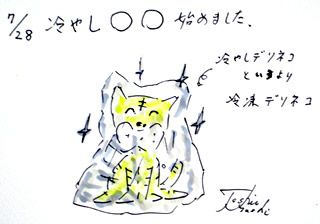 7/28 冷やし〇〇 始めました.
冷やしデリネコ
というより
冷凍デリネコ
Toshiu